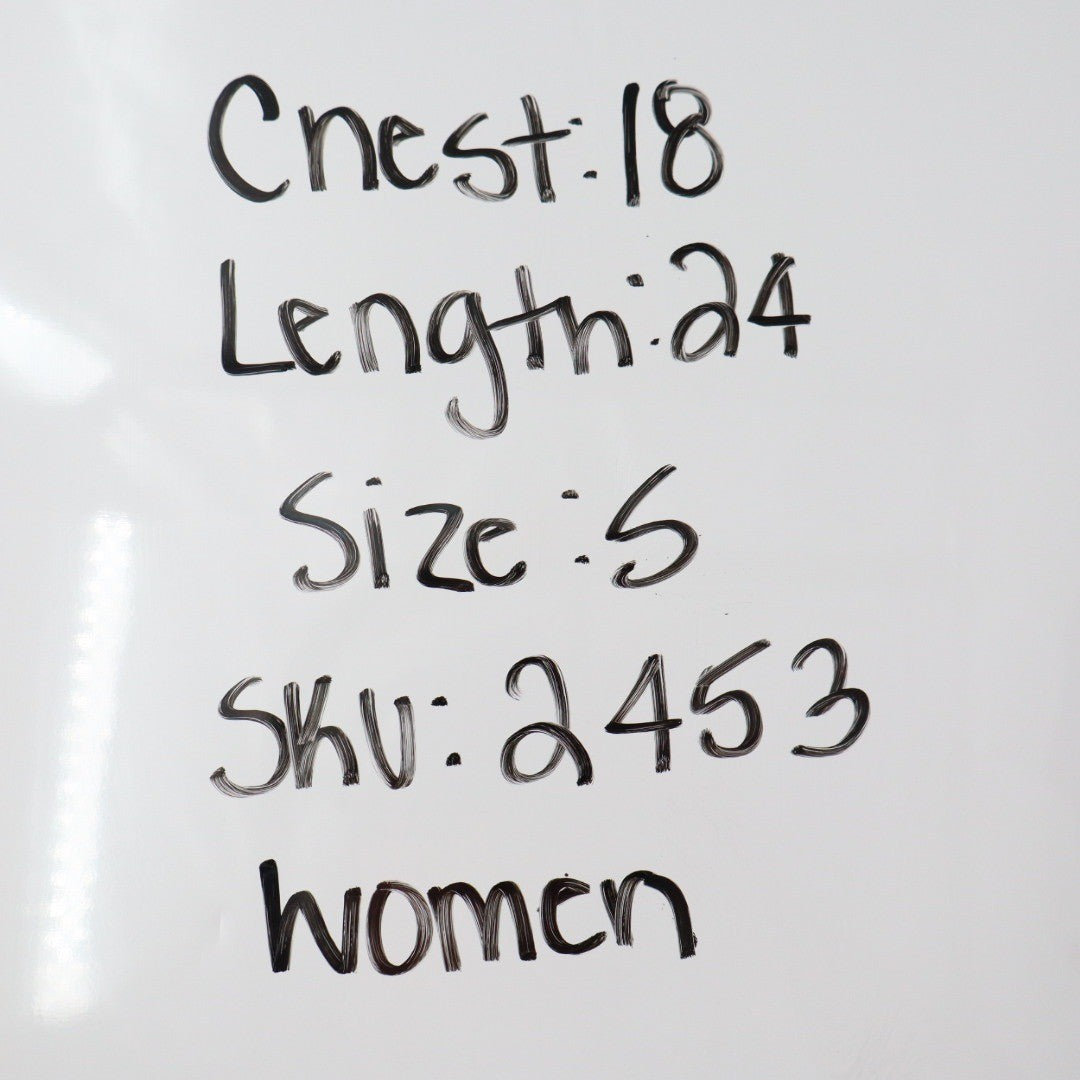 Chest:18
Length:24
Size:S
SKU:2453
Women